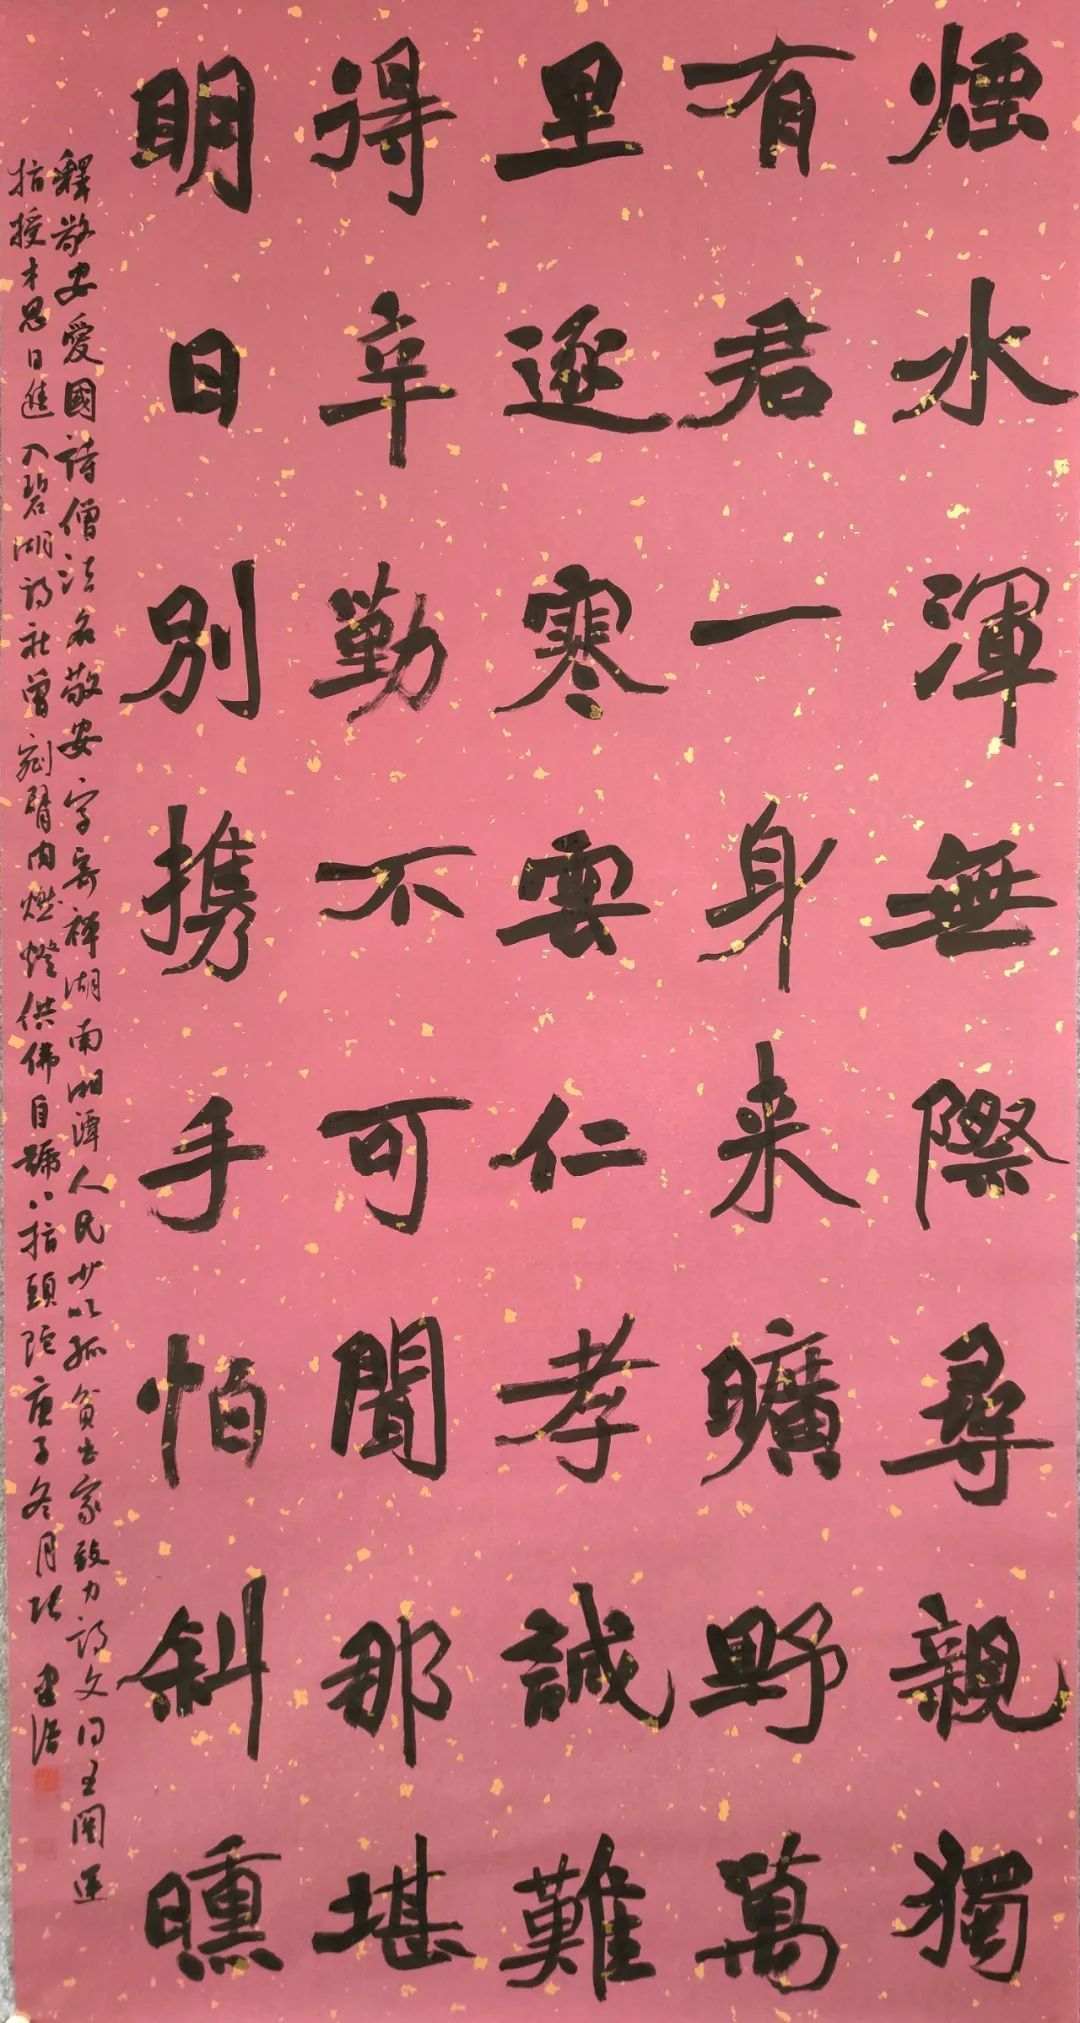 煙水渾無際尋親獨
有君一身来曠野萬
里逐寒雲仁孝誠難
得辛勤不可聞那堪
明日別携手怕斜曛
釋敬安愛國詩僧法名敬安字寄禅湖南湘潭人民少以孤貧出家致力詩文得王闓運
指授才思日進入碧湖詩社曾剜臂肉燃燈供佛自號八指頭陀庚子冬月